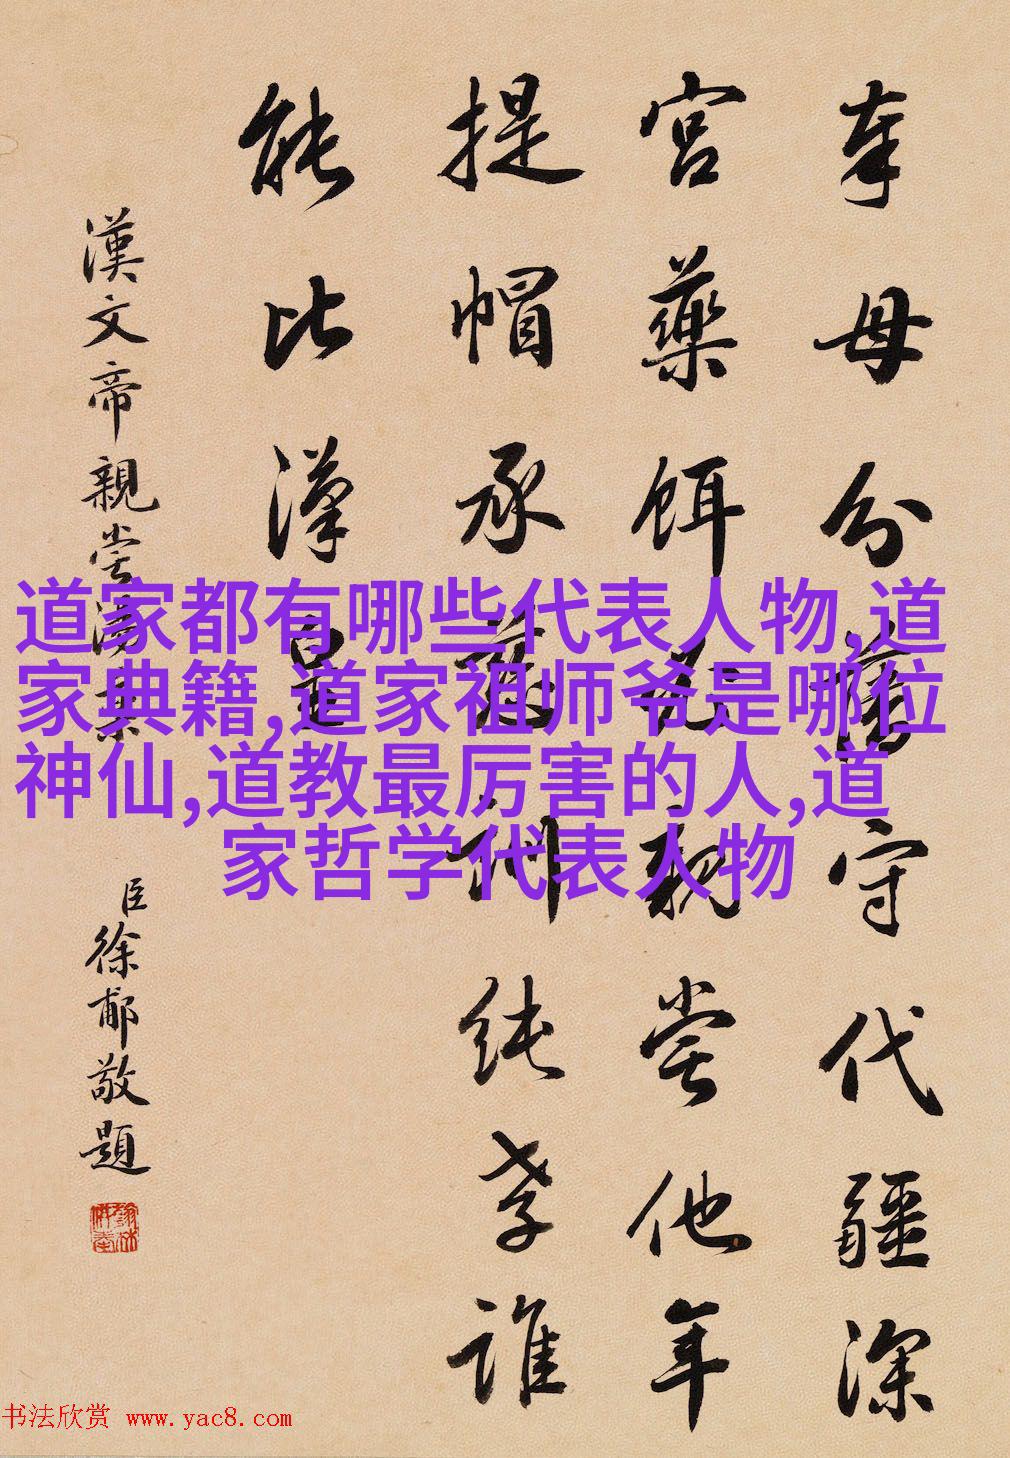 道家都有哪些代表人物,道
家典籍,道家祖师爷是哪位
神仙,道教最厉害的人,道
家哲学代表人物
奉母分藩守代疆深
宮藥餌親嘗他年
提帽承慈訓純孝誰
能比漢皇
漢文帝親嘗湯藥
臣徐郙敬題
书法欣赏 www.yac8.com